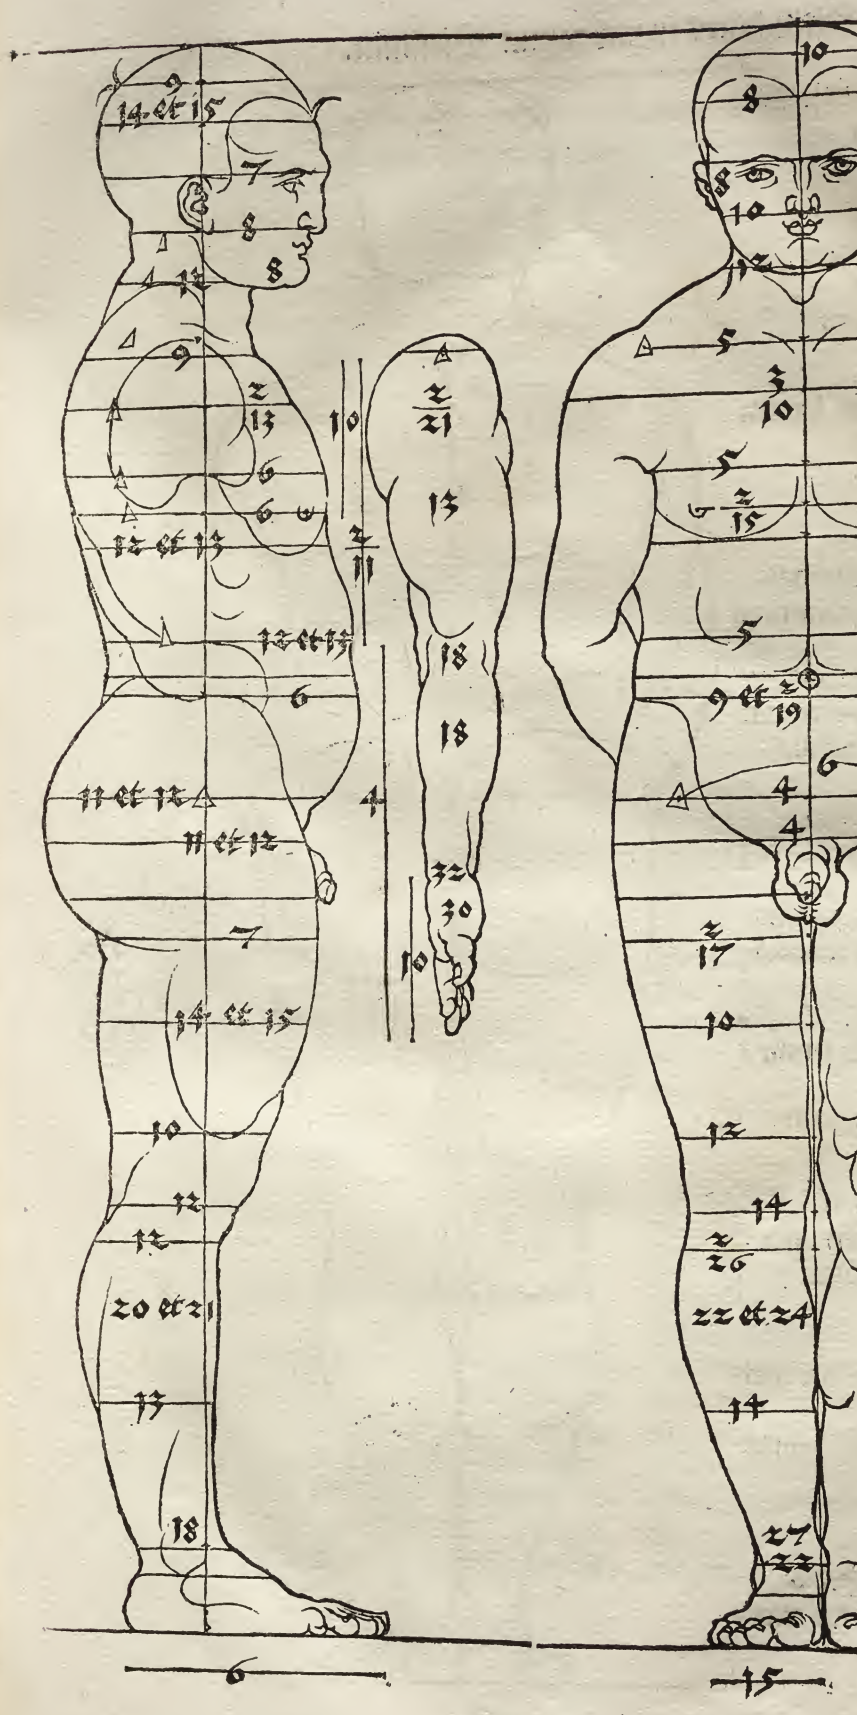 9
14 et 15
7
8
8
12
9
2
13
6
6
12 et 13
12 et 13
6
11 et 12
11 et 12
7
14 et 15
10
12
12
20 et 21
13
18
6
10
2
11
4
10
2
21
13
18
18
32
30
10
8
8
10
12
5
3
10
5
2
15
5
9 et 2
19
6
4
4
2
17
10
12
14
2
26
22 et 24
14
27
22
15